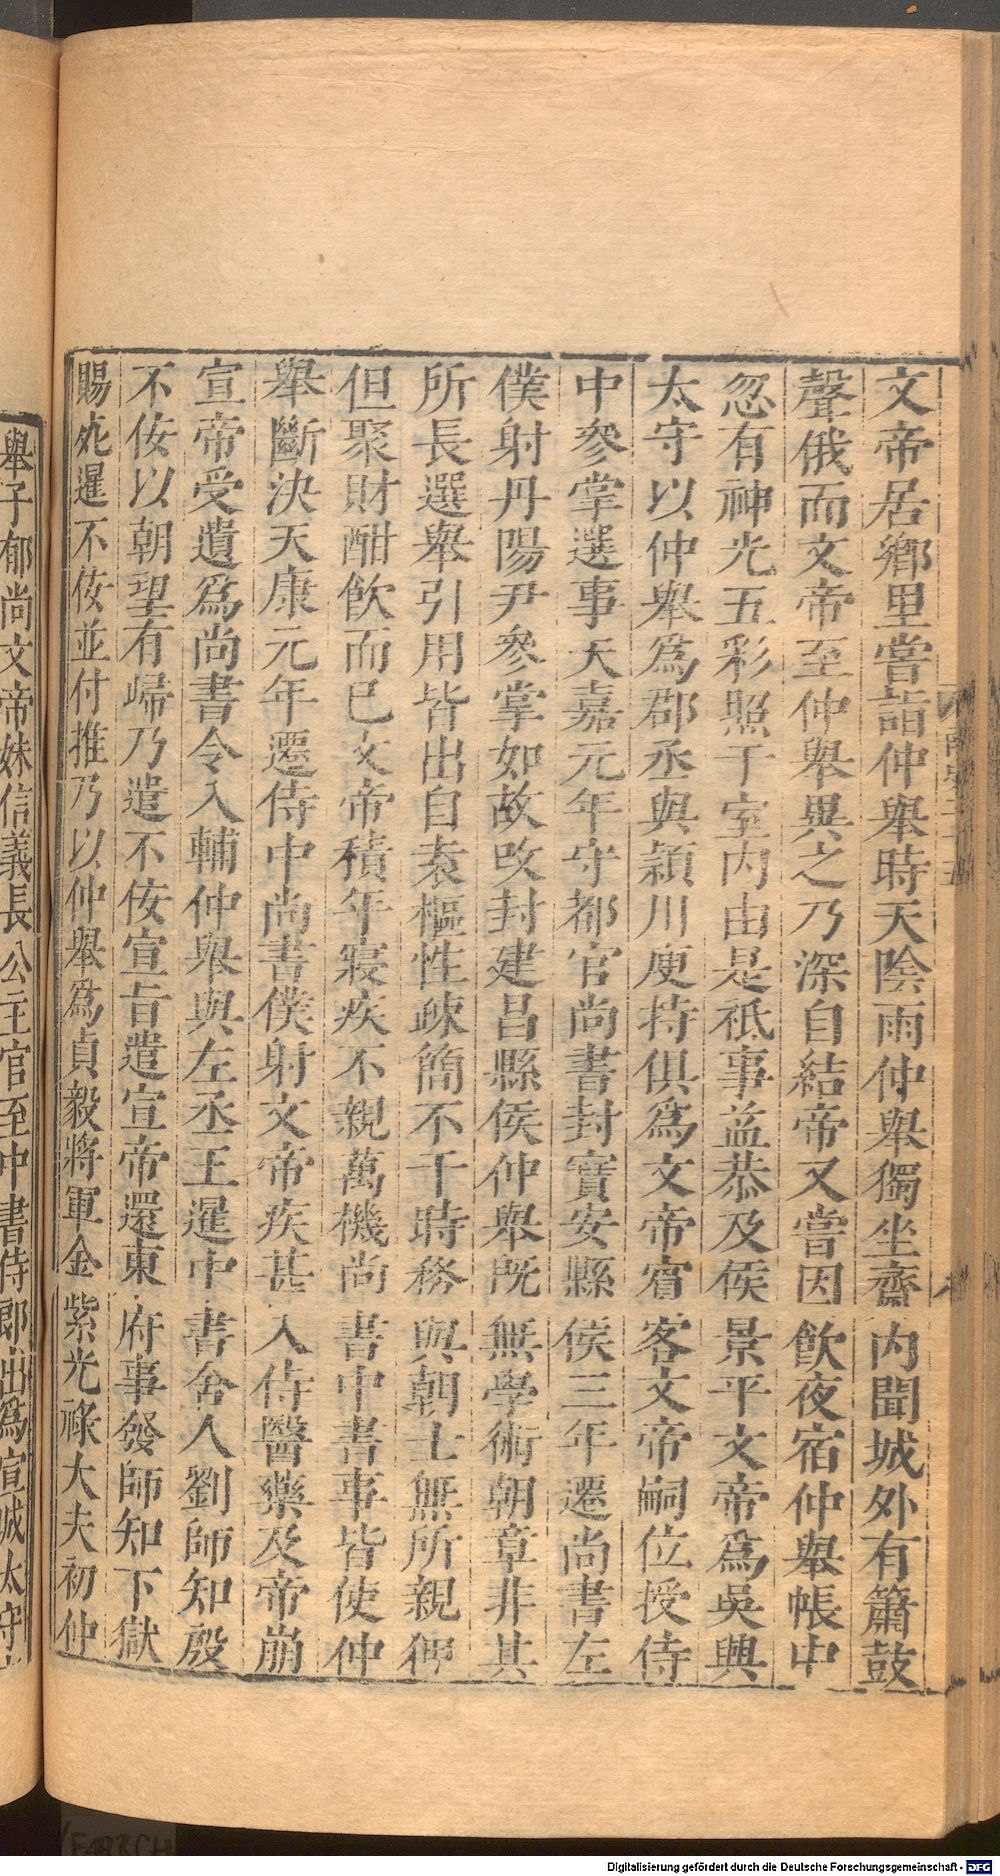 文帝居鄉里嘗詣仲舉時天陰雨仲舉獨坐齋內聞城外有簫鼓
聲俄而文帝至仲舉異之乃深自結帝又嘗因飲夜宿仲舉帳中
忽有神光五彩照于室內由是祗事益恭及侯景平文帝爲吳興
太守以仲舉爲郡丞與潁川庾持俱爲文帝賓客文帝嗣位授侍
中參掌選事天嘉元年守都官尚書封寶安縣侯三年遷尚書左
僕射丹陽尹參掌如故改封建昌縣侯仲舉旣無學術朝章非其
所長選舉引用皆出自袁樞性疎簡不干時務與朝士無所親狎
但聚財酣飲而已文帝積年寢疾不親萬機尚書中書事皆使仲
舉斷決天康元年遷侍中尚書僕射文帝疾甚入侍醫藥及帝崩
宣帝受遺爲尚書令入輔仲舉與左丞王暹中書舍人劉師知殷
不佞以朝望有歸乃遣不佞宣旨遣宣帝還東府事發師知下獄
賜死暹不佞並付推乃以仲舉爲貞毅將軍金紫光祿大夫初仲
舉子郁尚文帝妹信義長公主官至中書侍郎出爲宣城太守
Digitalisierung gefördert durch die Deutsche Forschungsgemeinschaft - DFG